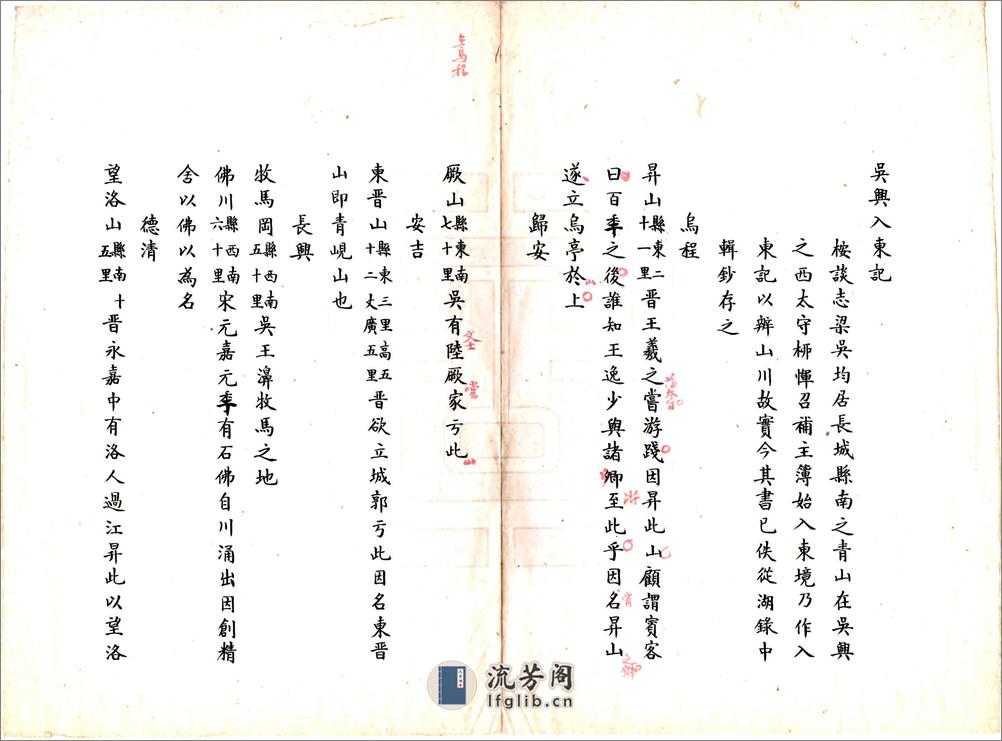 吳興入東記
桉談志梁吳均居長城縣南之青山在吳興
之西太守栁惲召補主簿始入東境乃作入
東記以辨山川故實今其書已佚從湖錄中
輯鈔存之
烏程
昇山縣東二十一里晉王羲之嘗游踐因昇此山顧謂賓客
曰百年之後誰知王逸少與諸卿至此乎因名昇山
遂立烏亭於上
歸安
厥山縣東南七十里吳有陸厥家亏此
安吉
東晉山縣東三里高五十二丈廣五里晉欲立城郭亏此因名東晉
山即青峴山也
長興
牧馬岡縣西南五十里吳王濞牧馬之地
佛川縣西南六十里宋元嘉元年有石佛自川涌出因創精
舍以佛以為名
德清
望洛山縣南十五里晉永嘉中有洛人過江昇此以望洛
烏程
流芳阁
lfglib.cn